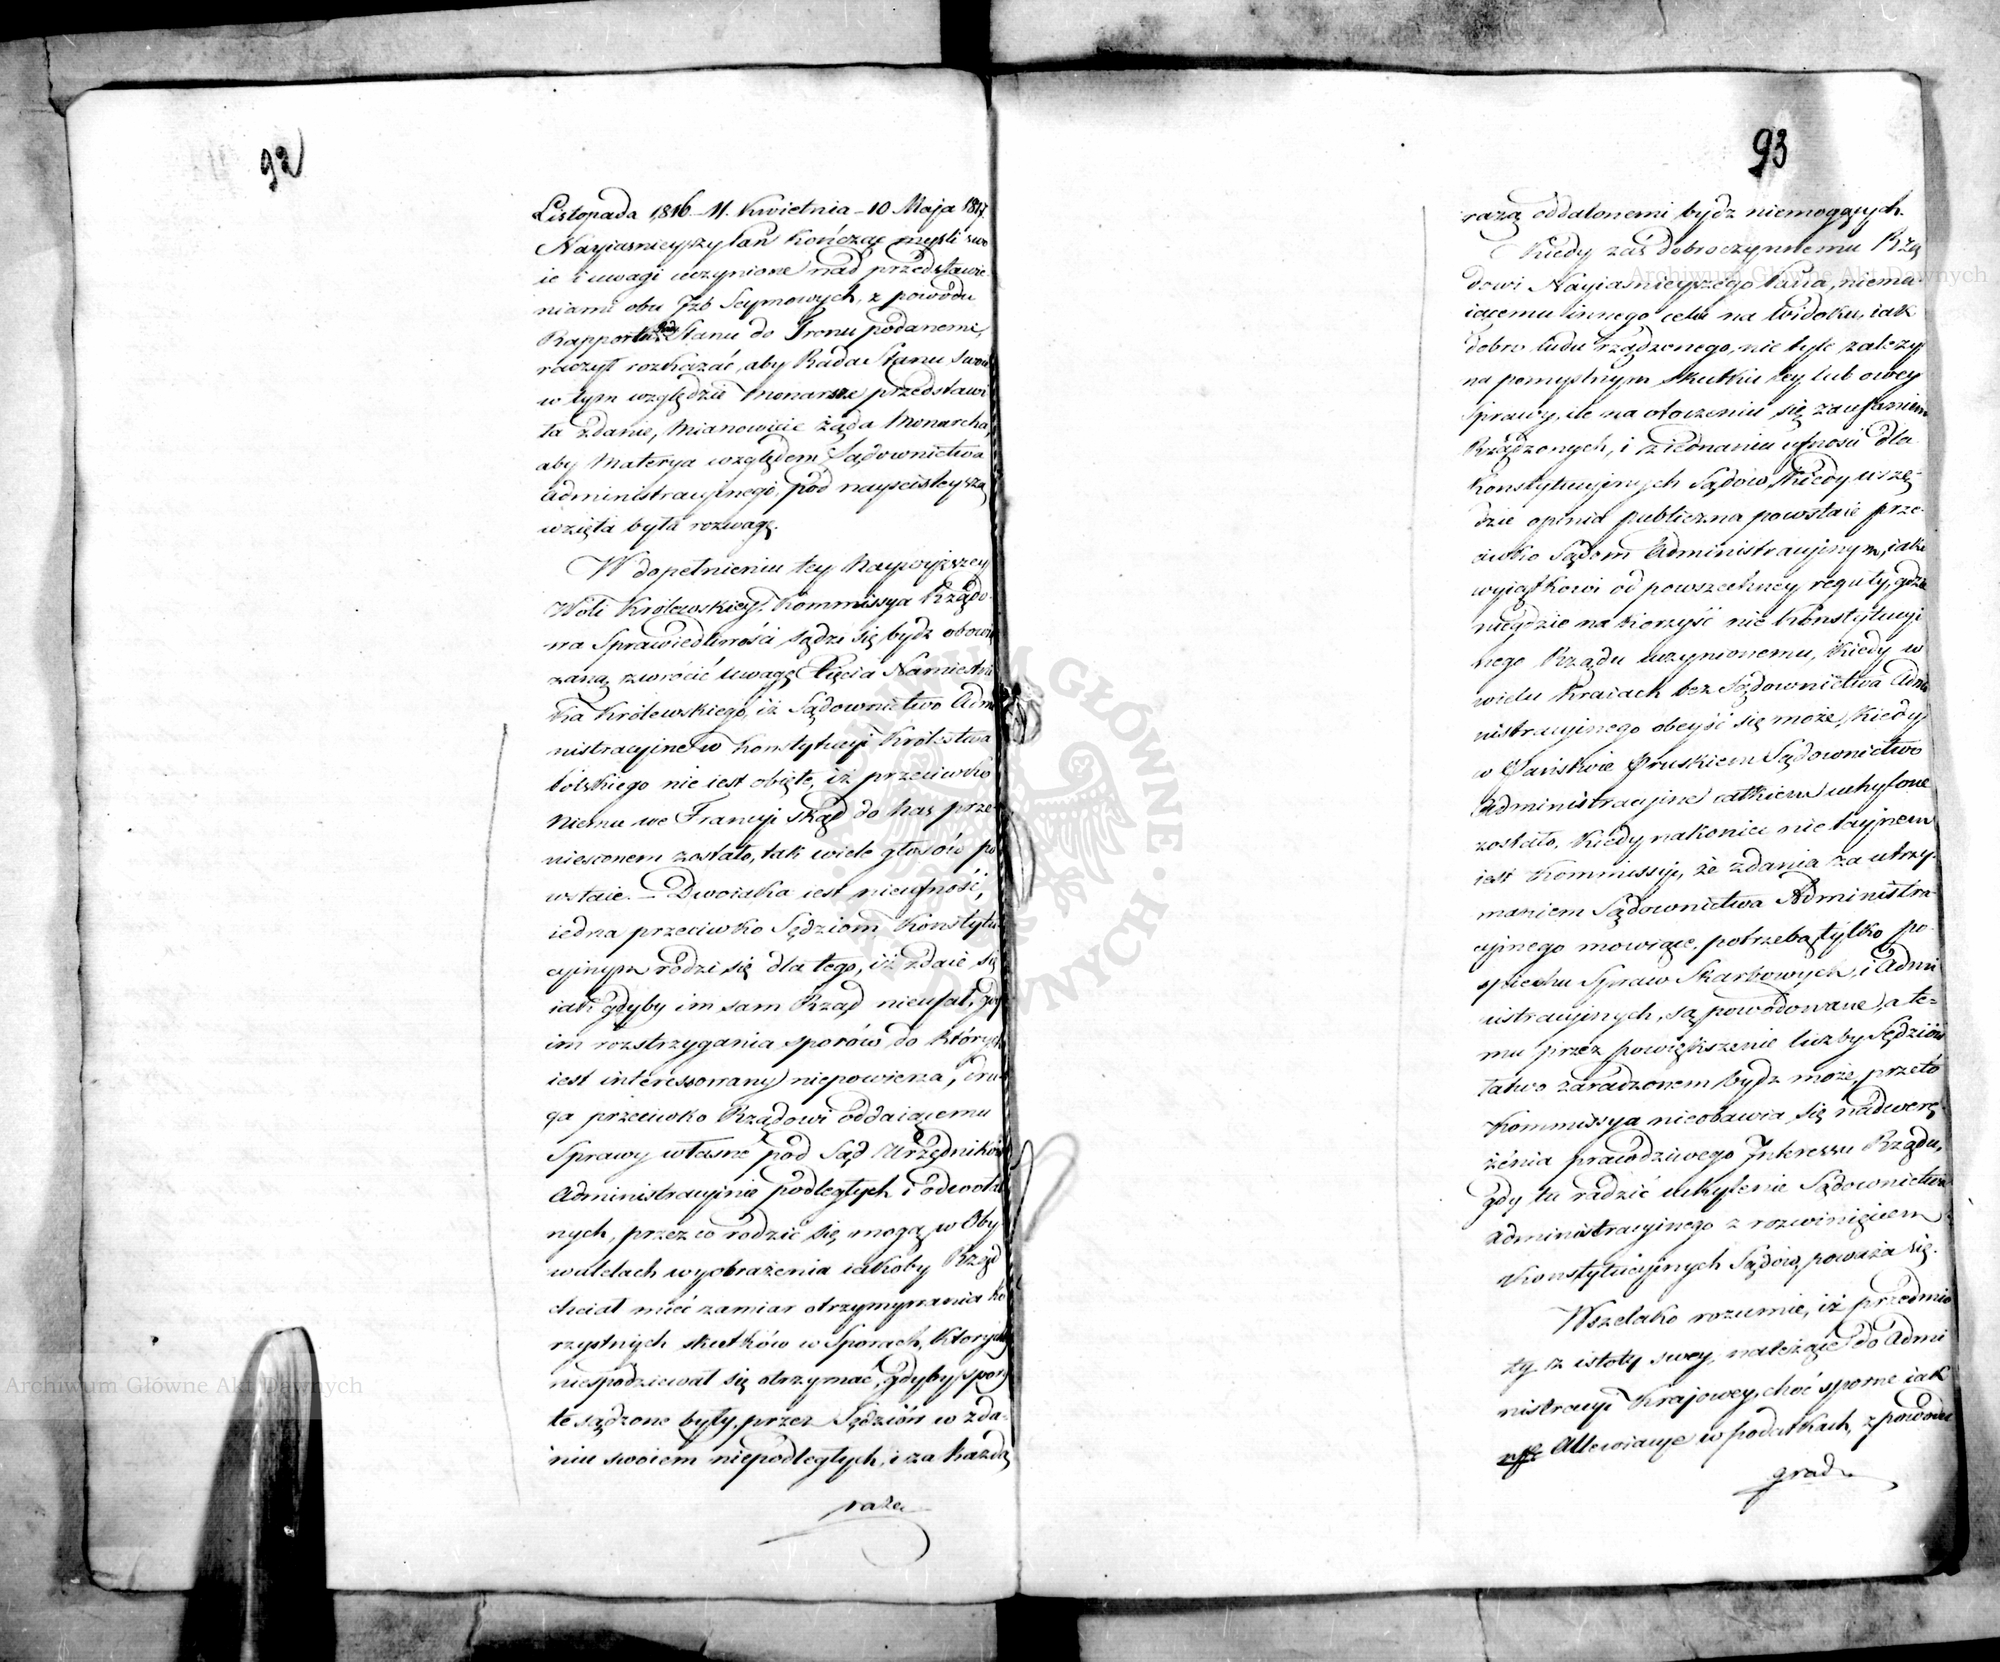 92
Listopada 1816 – 11. Kwietnia – 10 Maja 1817.
Nayiasnieyszy Pan kończąc mysli swo
ie i uwagi uczynione nad przedstawie
niami obu Jzb Seymowych, z powodu
Rapportu Rady Stanu do Tronu podanemi,
raczył rozkazać, aby Rada Stanu swoie
w tym względzie Monarsze przedstawi
ła zdanie, Mianowicie żąda Monarcha,
aby Materya względem Sądownictwa
administracyinego, pod nayscisleyszą
wzięta była rozwagę.
W dopełnieniu tey Naywyższey
Woli Królewskiey, Kommissya Rządo
wa Sprawiedliwości sądzi się bydz obowią
zaną zwrócić uwagę Xięcia Namiestni
ka Królewskiego, iż Sądownictwo Admi
nistracyine w Konstytucyi Królestwa
Polskiego nie iest obięte, iż przeciwko
Niemu we Francyi skąd do nas prze
niesionem zostało, tak wiele głosów po
wstaie. – Dwoiaka iest nieufność,
iedna przeciwko Sędziom Konstytu
cyinym rodzi się dla tego, iż zdaie się
iak gdyby im sam Rząd nieufał, gdy
im rozstrzygania sporów do których
iest interessowany niepowierza, dru
ga przeciwko Rządowi oddaiącemu
Sprawy własne pod Sąd Urzędników
Administracyinie podległych i odwołal
nych, przez co rodzić się mogą w Oby
watelach wyobrażenia iakoby Rząd
chciał mieć zamiar otrzymywania ko
rzystnych skutków w Sporach, których
niespodziewał się otrzymać, gdyby spory
te sądzone były przez Sędziów w zda-
niu swoiem niepodległych, i za każdą
razą
93
razą oddalonemi bydz niemogących.
Kiedy zaś dobroczynnemu Rzą
dowi Nayiasnieyszego Pana, niema
iącemu innego celu na widoku, iak
dobro ludu rządzonego, nie tyle zależy
na pomyslnym skutku tey lub owey
Sprawy, ile na otoczeniu się zaufaniem
Rządzonych, i ziednaniu ufnosci dla
Konstytucyinych Sądów, Kiedy wszę-
dzie opinia publiczna powstaie prze-
ciwko Sądom Administracyinym, iako
wyiątkowi od powszechney reguły, gdzie
niegdzie na korzyść nie konstytucyi
nego Rządu uczynionemu, Kiedy w
wielu Kraiach bez Sądownictwa Admi
nistracyinego obeyść się może, Kiedy
w Państwie Pruskiem Sądownictwo
Administracyine całkiem uchylone
zostało, Kiedy nakoniec nie tayнem
iest Kommissyi, że zdania za utrzy-
maniem Sądownictwa Administra-
cyinego mowiące, potrzebą tylko po-
spiechu Spraw Skarbowych, i Admi
nistracyinych, są powodowane, a te-
mu przez powiększenie liczby Sędziów
łatwo zaradzonem bydz może, przeto
Kommissya nieobawia się nadwerę-
żenia prawdziwego Jnteressu Rządu,
gdy tu radzić uchylenie Sądownictwa
Administracyinego z rozwinięciem
Konstytucyinych Sądów, poważa się.
Wszelako rozumie, iż przedmio
ty z istoty swey, należące do Admi
nistracyi Krajowey, choć sporne iak
Allewiacye w podatkach, z powodu
grado